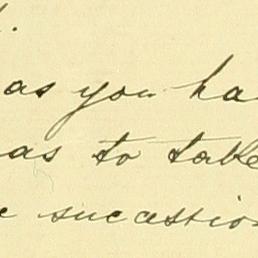 as you ha
as to table
succession